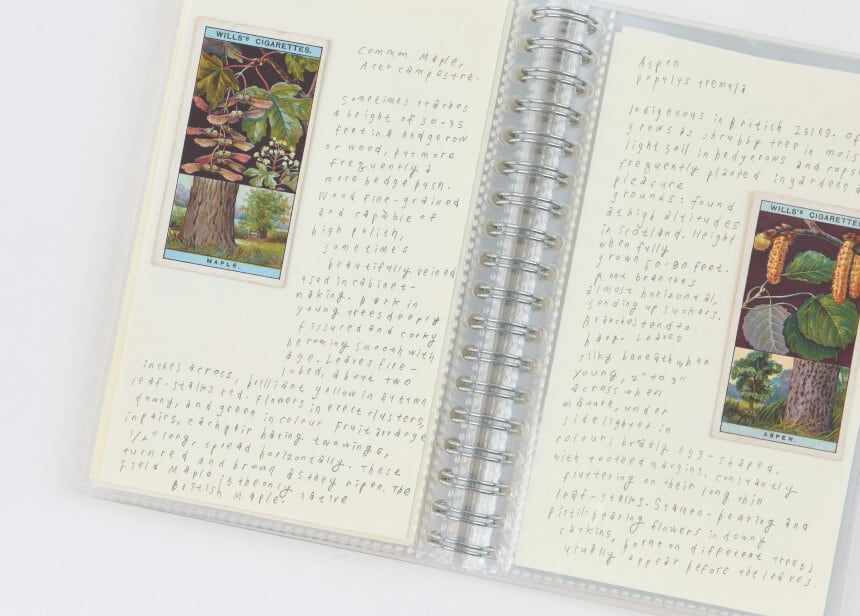 WILLS'S CIGARETTES.
MAPLE.
Common Maple,
Acer campestre.
Sometimes reaches
a height of 30-35
feet in a hedgerow
or wood, but more
frequently a
mere hedge bush.
Wood fine-grained
and capable of
high polish,
sometimes
beautifully veined
used in cabinet-
making. Bark in
young trees deeply
fissured and corky
becoming smooth with
age. Leaves five-
lobed, about two
inches across, brilliant yellow in autumn
leaf-stalks red. Flowers in erect clusters,
downy, and green in colour. Fruit arrange
in pairs, each pair having two wings,
1/2" long, spread horizontally. These
turn red and brown as they ripen. The
Field Maple is the only native
British Maple.
Aspen
populus tremula
Indigenous in British Isles. Of
grows as shrubby tree in mois
light soil in hedgerows and cops
frequently planted in gardens a
pleasure
grounds: found
at high altitudes
in Scotland. Height
when fully
grown 50-80 feet.
Root branches
almost horizontal,
sending up suckers.
Branches tend to
bark. Leaves
silky beneath when
young, 2" to 3"
across when
mature, under
side lighter in
colour; broadly egg-shaped,
with toothed margins, constantly
fluttering on their long thin
leaf-stalks. Stamen-bearing and
pistil-bearing flowers in downy
catkins, borne on different trees;
usually appear before the leaves.
WILLS'S CIGARETTES
ASPEN.